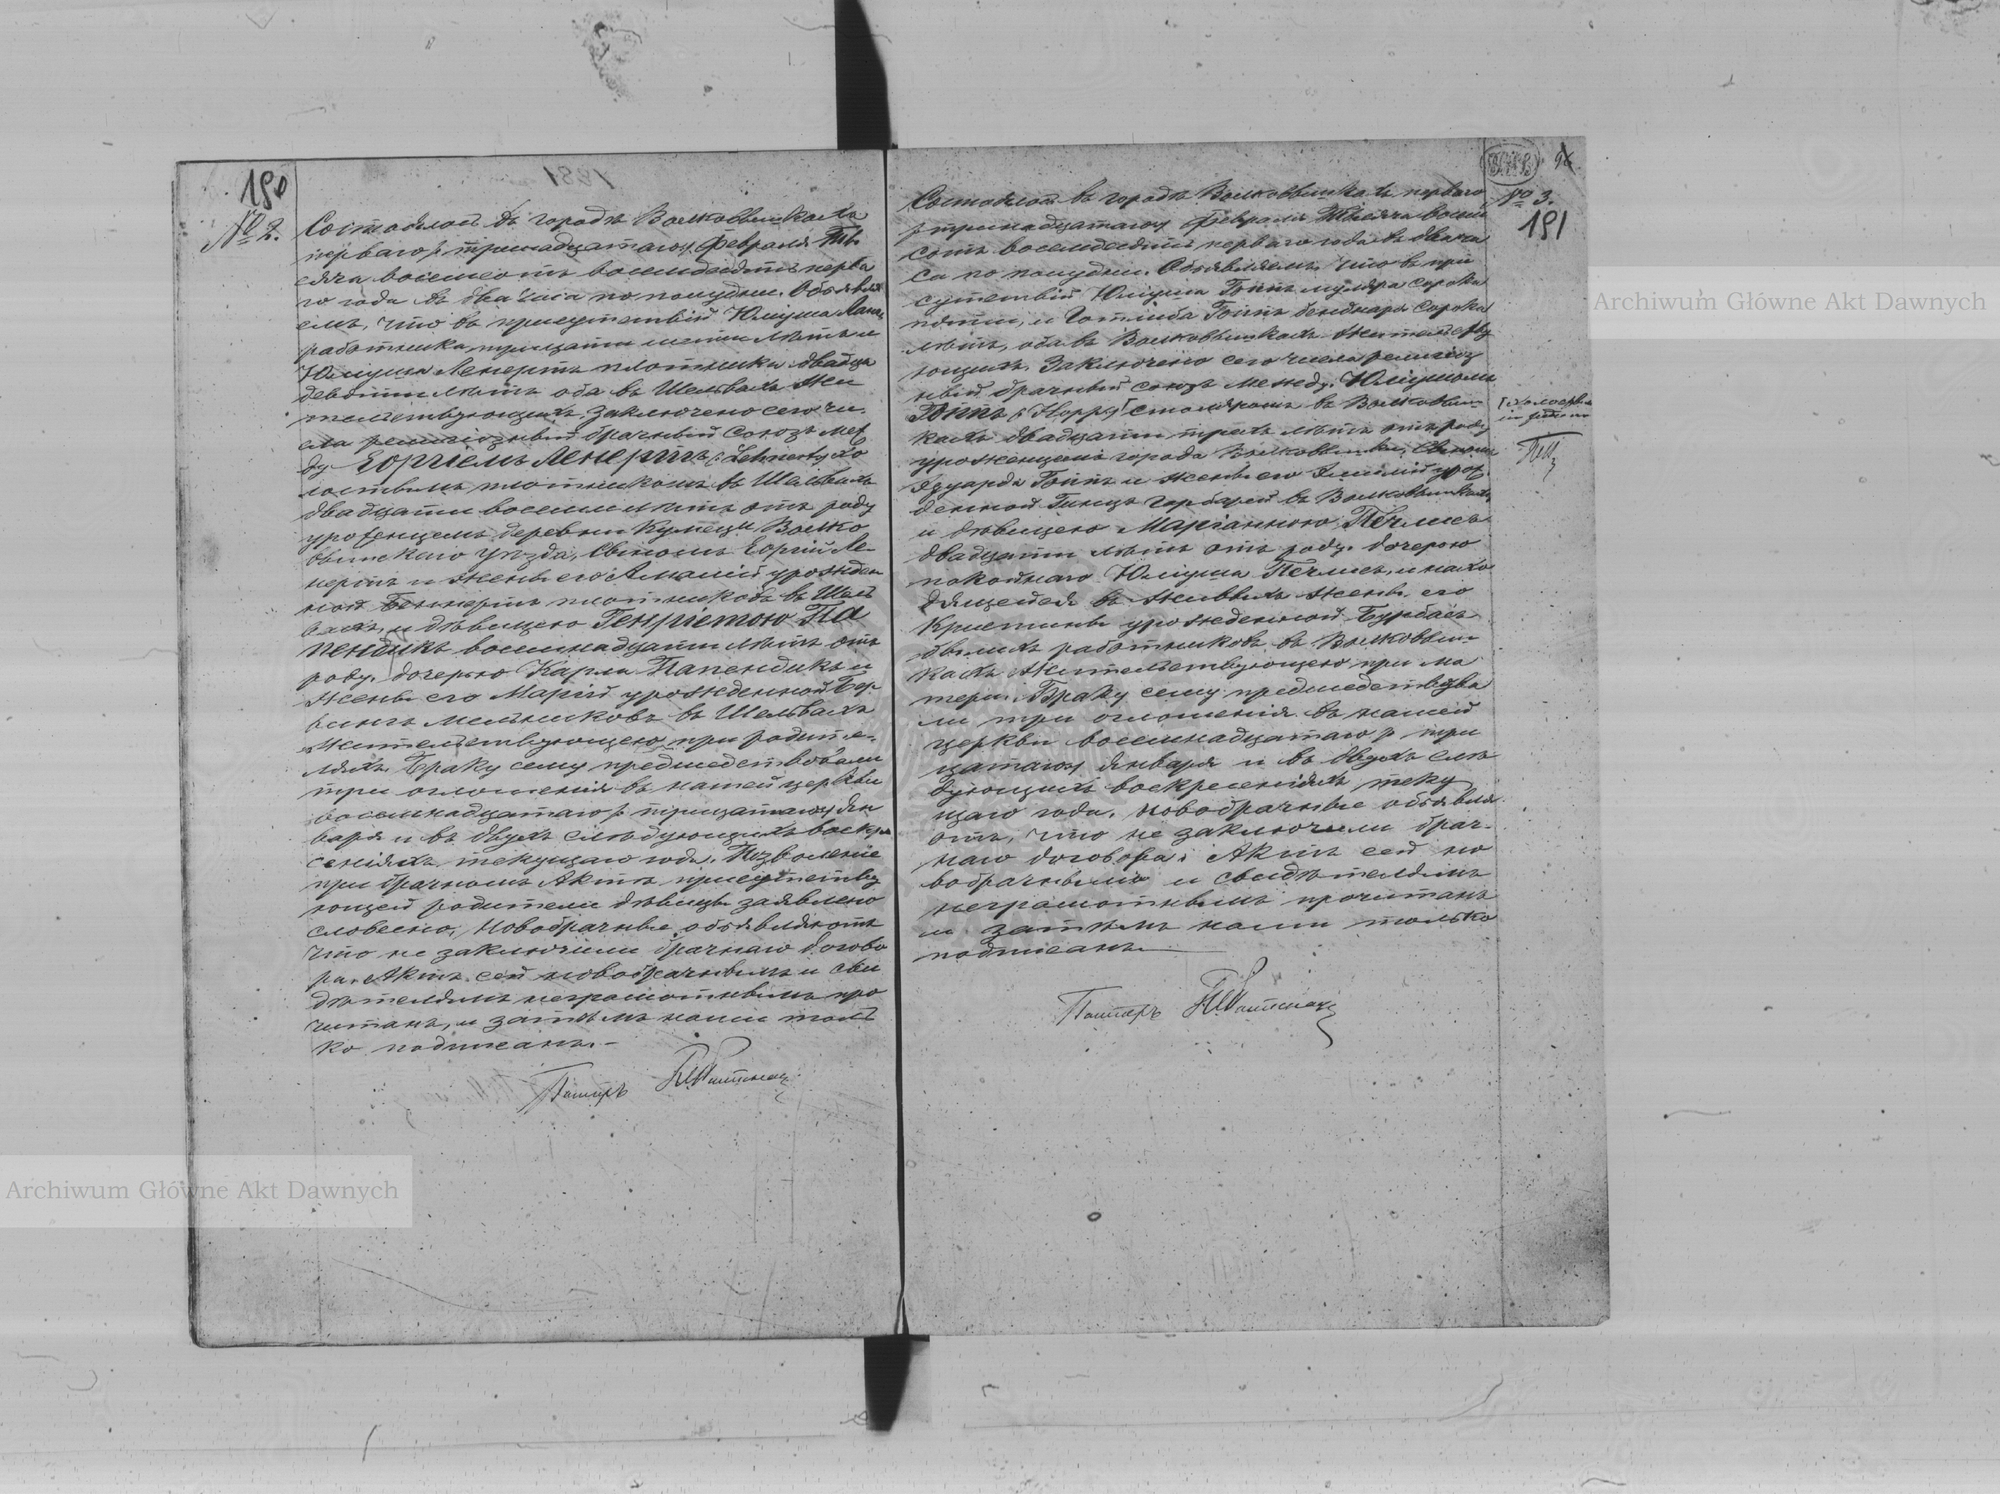 190
№ 2.
Состоялось въ городѣ Волковышкахъ
перваго /:тринадцатаго:/ Февраля Ты
сяча восемсотъ восемдесятъ перва
го года въ два часа по полудни. Объявля
емъ, что въ присутствіи Юліуша
работника, тридцати шести лѣтъ и
Юліуша Ленертъ плотника двадца
девяти лѣтъ оба въ Шельвахъ жи
тельствующихъ, заключено сего чи
сла религіозный брачный союзъ меж
ду Георгіемъ Ленертъ /:Lehnert:/ хо
лостымъ плотникомъ въ Шельвахъ
двадцати восьми лѣтъ отъ роду
урожденцемъ деревни Волко
вышскаго уѣзда, сыномъ Георгія Ле-
нертъ и жены его Амаліи урожден
ной плотниковъ въ Шель
вахъ, и дѣвицею Генріетою Па
пендикъ восемнадцати лѣтъ отъ
роду, дочерью Карла Папендикъ и
жены его Маріи урожденной
мельниковъ въ Шельвахъ
жительствующею при родите-
ляхъ. Браку сему предшествовали
три оглошенія въ нашей церкви
восемнадцатаго /:тридцатаго:/ Ян
варя и въ двухъ слѣдующихъ воскре
сеніяхъ текущаго года. Позволеніе
при брачномъ Актѣ присутству
ющей родители дѣвицы заявлено
словесно. Новобрачные объявляютъ
что не заключили брачнаго догово
ра. Актъ сей новобрачнымъ и сви
дѣтелямъ неграмотнымъ про
читанъ, и затѣмъ нами толь
ко подписанъ.-
Пасторъ
№ 3.
191
Состоялось въ городѣ Волковышкахъ перваго
/:тринадцатаго:/ Февраля Тысяча восем
сотъ восемдесятъ перваго года въ два ча
са по полудни. Объявляемъ, что въ при
сутствіи Юліуша Гоппъ муляра сорока
пяти, и Готлиба Гоппъ бенднаря сорока
лѣтъ, оба въ Волковышкахъ жительству
ющихъ. Заключено сего числа религіоз
ный брачный союзъ между Юліушомъ
Гоппъ /:Hopp:/ столяромъ въ Волковыш-
кахъ двадцати трехъ лѣтъ отъ роду
урожденцемъ города Волковышки, сыномъ
Эдуарда Гоппъ и жены его Эмиліи урож
денной Гинцъ въ Волковышкахъ,
и дѣвицею Маріанною
двадцати лѣтъ отъ роду, дочерью
покойнаго Юліуша и нахо
дящейся въ живыхъ жены его
Кристины урожденной
бывшихъ работниковъ въ Волковыш-
кахъ жительствующею при ма
тери. Браку сему предшествова
ли три оглошенія въ нашей
церкви восемнадцатаго /:три
цатаго:/ Января и въ двухъ слѣ
дующихъ воскресеніяхъ теку
щаго года. Новобрачные объявля
ютъ, что не заключили брач-
наго договора. Актъ сей но
вобрачнымъ и свидѣтелямъ
неграмотнымъ прочитанъ
и затѣмъ нами только
подписанъ.
Пасторъ
Archiwum Główne Akt Dawnych
Archiwum Główne Akt Dawnych